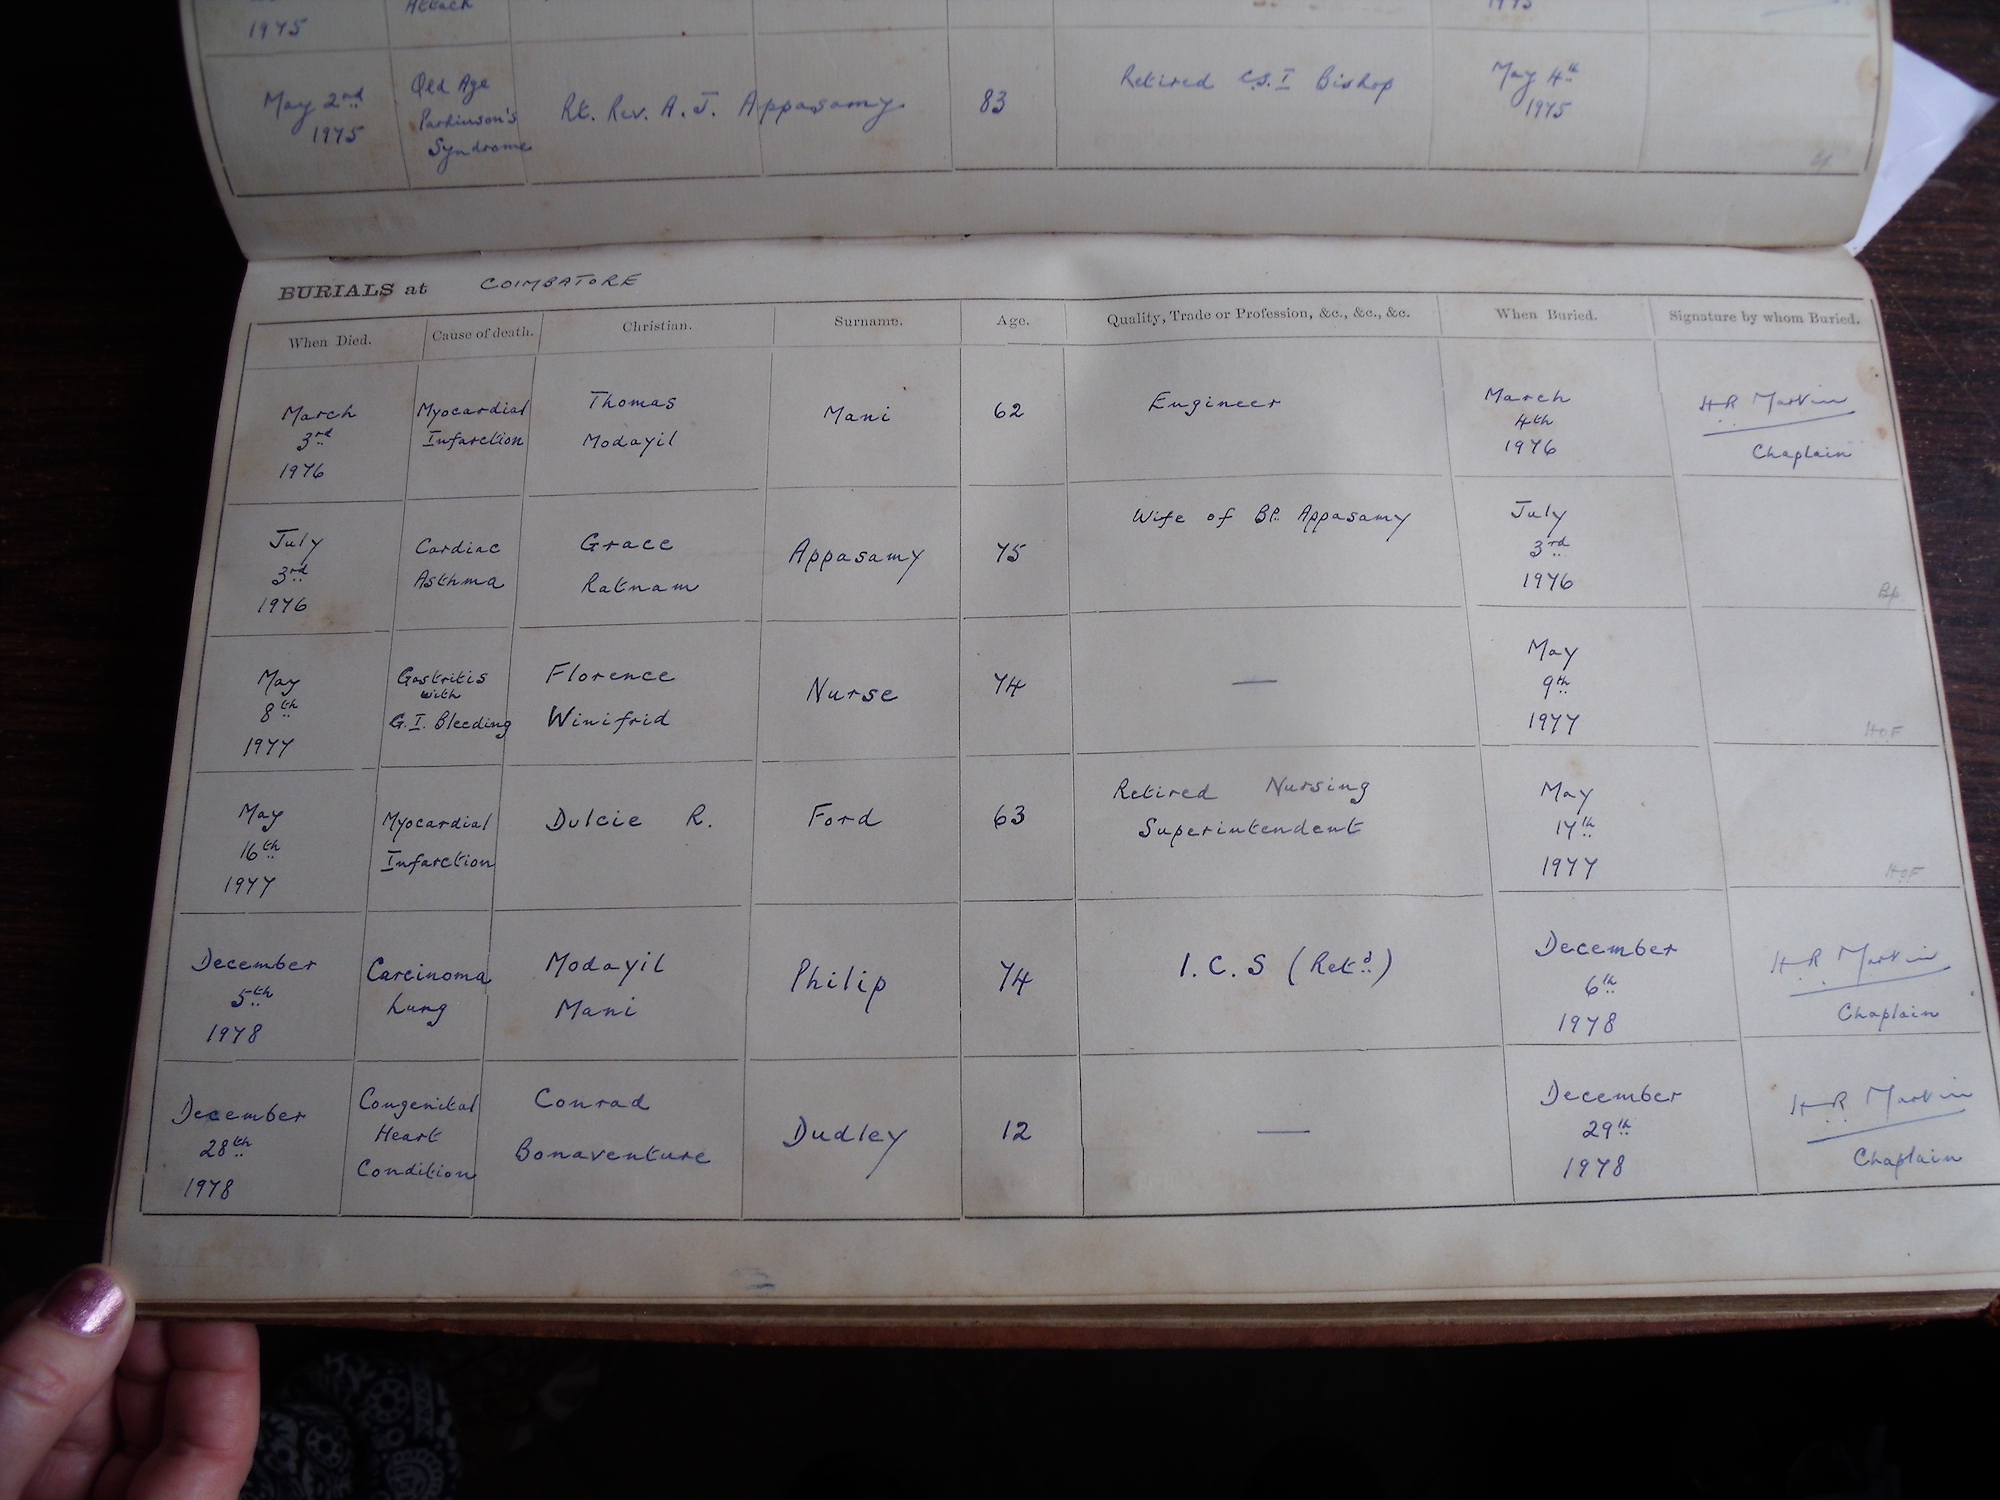 Attack
1975
1975
May 2nd
1975
Old Age
Parkinson's
Syndrome
Rt. Rev. A. J. Appasamy
83
Retired C.S.I Bishop
May 4th
1975
BURIALS at COIMBATORE
When Died. Cause of death. Christian. Surname. Age. Quality, Trade or Profession, &c., &c., &c. When Buried. Signature by whom Buried.
March
3rd
1976
Myocardial
Infarction
Thomas
Modayil
Mani
62
Engineer
March
4th
1976
H R Martin
Chaplain
July
3rd
1976
Cardiac
Asthma
Grace
Ratnam
Appasamy
75
Wife of Bp. Appasamy
July
3rd
1976
Bp
May
8th
1977
Gastritis
with
G.I. Bleeding
Florence
Winifrid
Nurse
74
—
May
9th
1977
HOF
May
16th
1977
Myocardial
Infarction
Dulcie R.
Ford
63
Retired Nursing
Superintendent
May
17th
1977
HOF
December
5th
1978
Carcinoma
Lung
Modayil
Mani
Philip
74
I.C.S (Retd.)
December
6th
1978
H R Martin
Chaplain
December
28th
1978
Congenital
Heart
Condition
Conrad
Bonaventure
Dudley
12
—
December
29th
1978
H R Martin
Chaplain